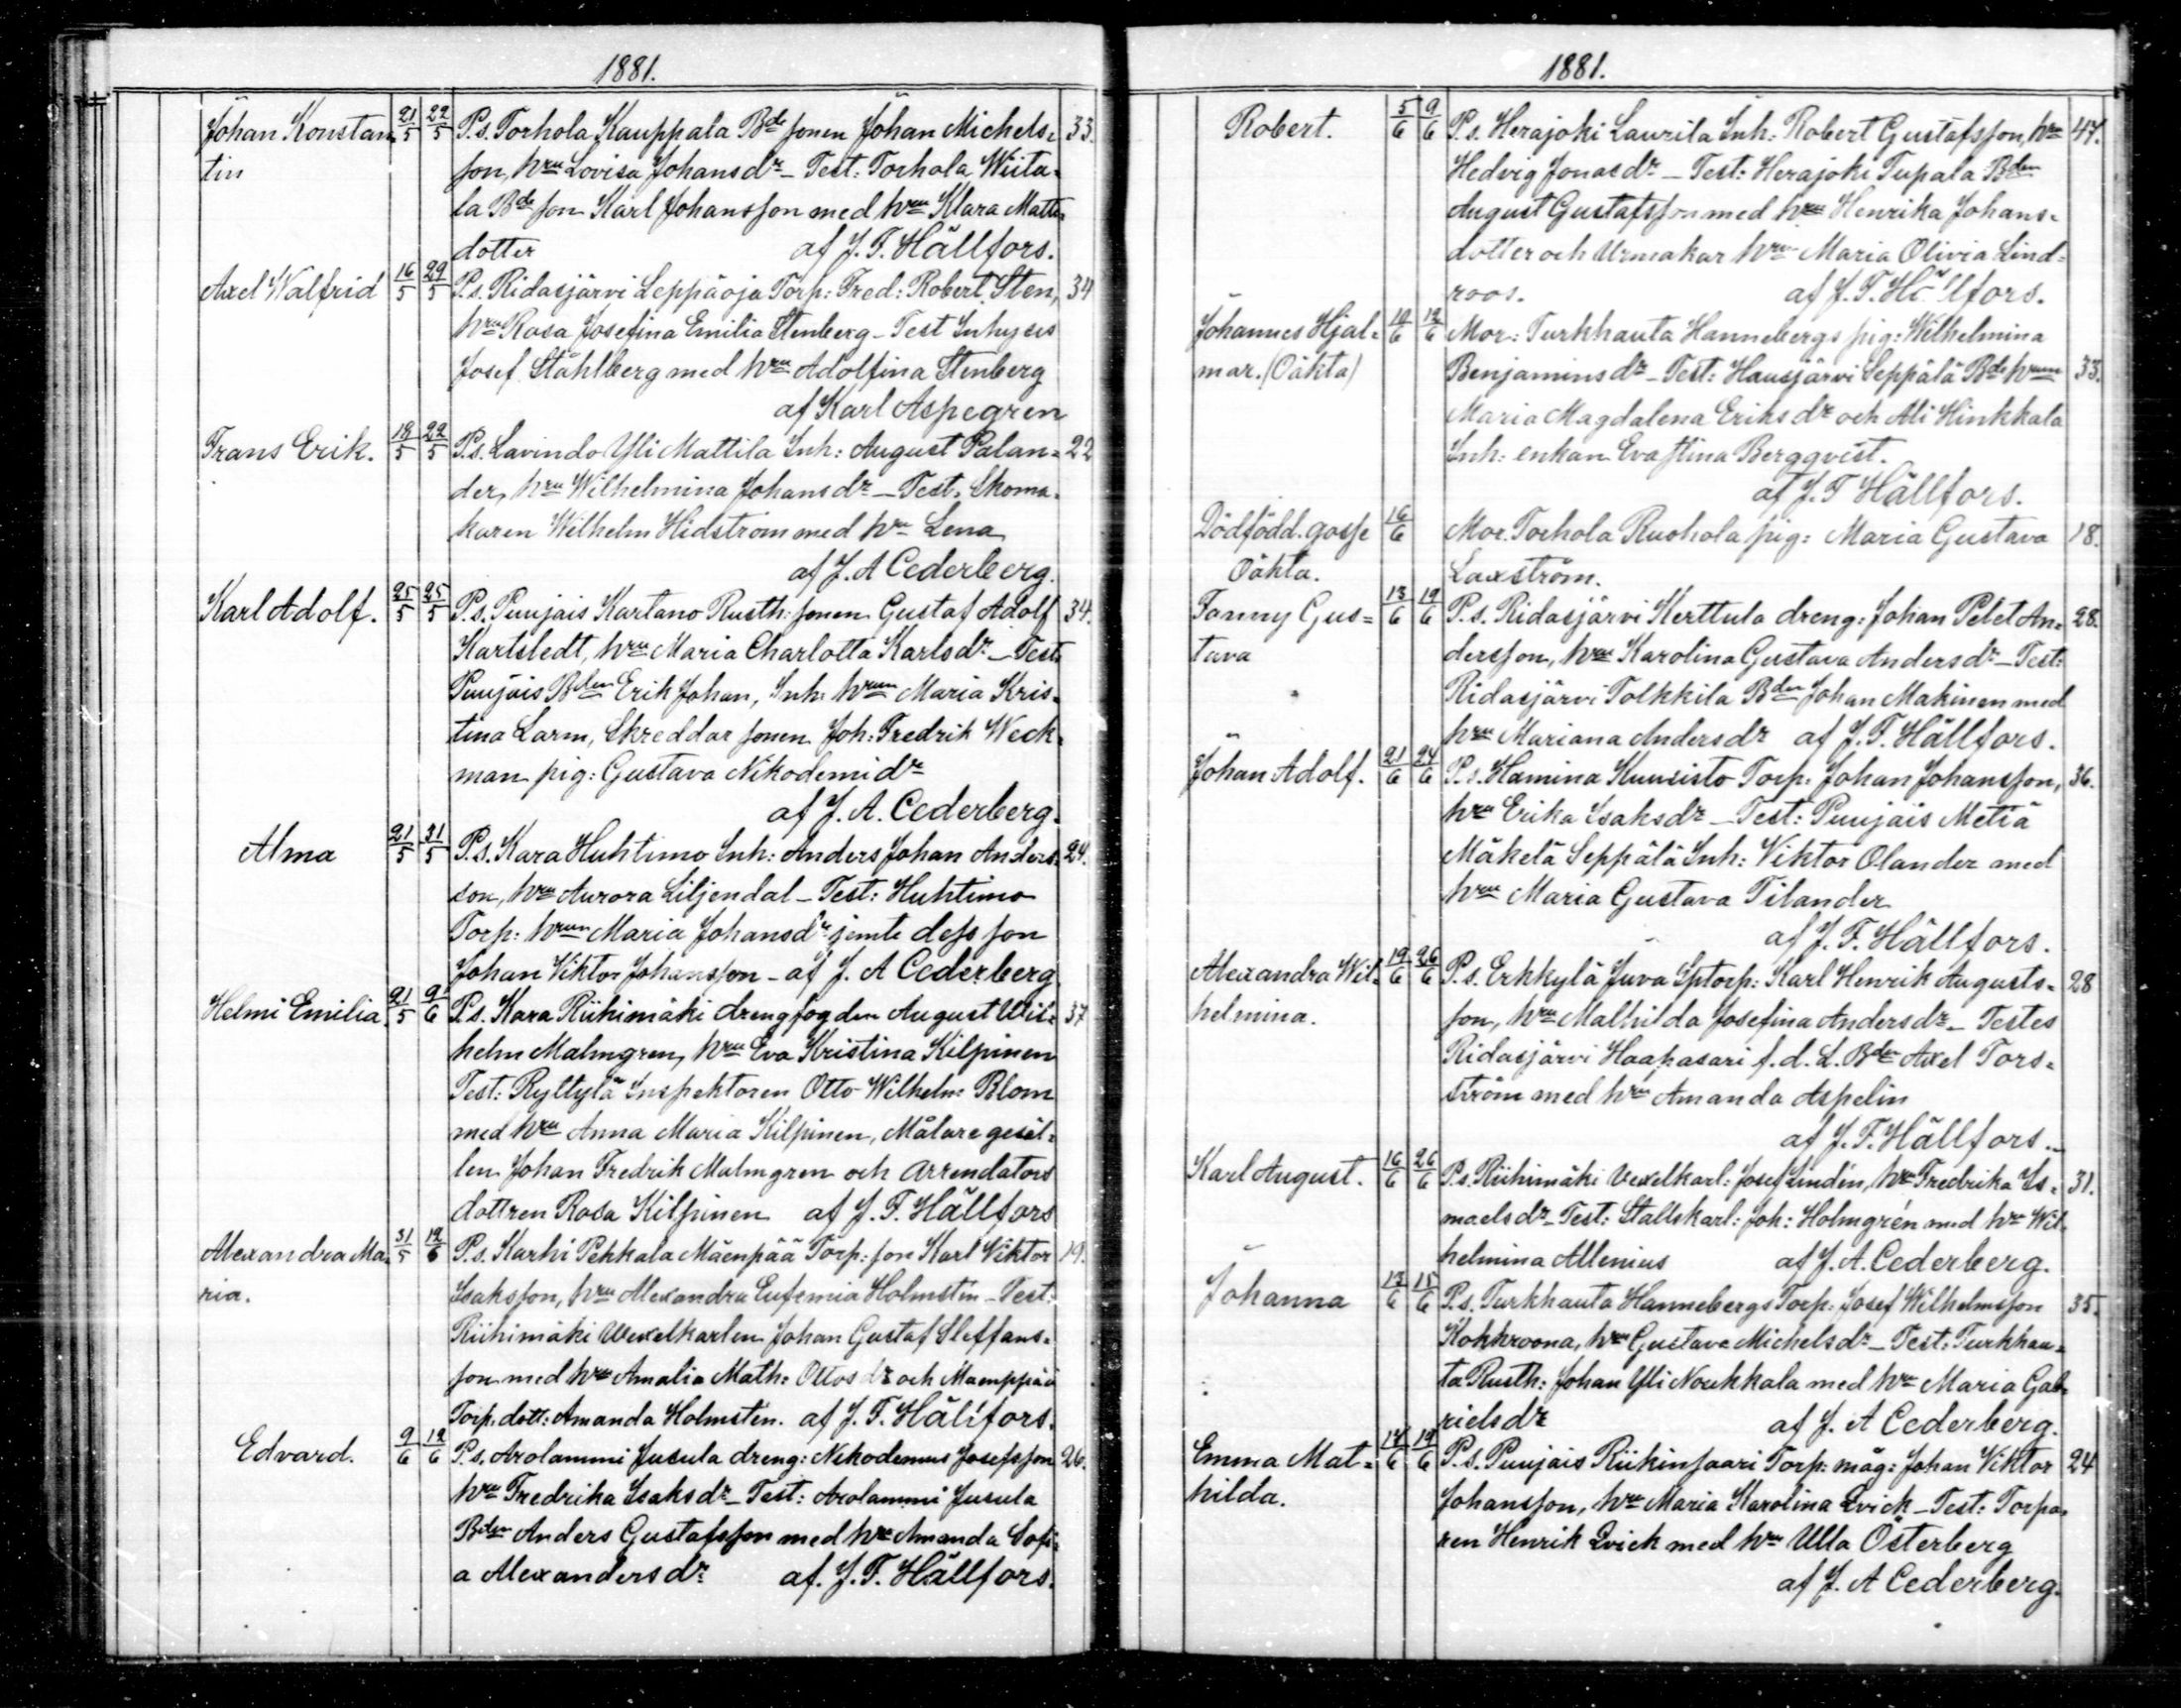 1881.
Johan Konstan- 21/5 22/5 P.s. Torhola Kauppala Bde sonen Johan Michels- 33.
tin son, hru Lovisa Johansdr – Test: Torhola Wiita-
la Bde son Karl Johansson med hru Klara Matts-
dotter af J. F. Hällfors.
Axel Walfrid 16/5 29/5 P.s. Ridasjärvi Leppäoja Torp: Fred: Robert Sten, 34
hru Rosa Josefina Emilia Stenberg – Test Inhyses
Josef Ståhlberg med hru Adolfina Stenberg
af Karl Aspegren
Frans Erik. 18/5 22/5 P.s. Lavindo Yli Mattila Inh: August Palan- 22
der, hru Wilhelmina Johansdr – Test. Skoma-
karen Wilhelm Hidström med hru Lena
af J. A Cederberg.
Karl Adolf. 25/5 25/5 P.s. Puujais Kartano Rusth: sonen Gustaf Adolf 34.
Kartstedt, hru Maria Charlotta Karlsdr – Test:
Puujais Bden Erik Johan, Inh: hrun Maria Kris-
tina Larm, Skreddar sonen Joh: Fredrik Weck-
man pig: Gustava Nikodemidr
af J. A. Cederberg.
Alma 21/5 31/5 P.s. Kara Huhtimo Inh: Anders Johan Anders- 24.
son, hru Aurora Liljendal – Test: Huhtimo
Torp: hrun Maria Johansdr jemte dess son
Johan Viktor Johansson – af J. A Cederberg
Helmi Emilia. 21/5 9/6 P.s. Kara Riihimäki drengfogden August Wil- 37
helm Malmgren, hru Eva Kristina Kilpinen
Test: Ryttylä Inspektoren Otto Wilhelm Blom
med hru Anna Maria Kilpinen, Målare gesäl-
len Johan Fredrik Malmgren och Arrendators
dottren Rosa Kilpinen af J. F. Hällfors
Alexandra Ma- 31/5 12/6 P.s. Karhi Pekkala Mäenpää Torp: son Karl Viktor 19.
ria. Isaksson, hru Alexandra Eufemia Holmstén – Test:
Riihimäki Wexelkarlen Johan Gustaf Steffans-
son med hru Amalia Math: Ottosdr och Mäenpää
Torp. dott: Amanda Holmstén. af J. F. Hällfors.
Edvard. 9/6 12/6 P.s. Arolammi Jusula dreng: Nikodemus Josefsson 26.
hru Fredrika Isaksdr – Test: Arolammi Jusula
Bden Anders Gustafsson med hru Amanda Sofi-
a Alexandersdr af. J. F. Hällfors.
1881.
Robert. 5/6 9/6 P.s. Herajoki Laurila Inh: Robert Gustafsson, hru 47.
Hedvig Jonasdr – Test: Herajoki Tupala Bden
August Gustafsson med hru Henrika Johans-
dotter och Urmakar hrun Maria Olivia Lind-
roos. af J. F. Hällfors.
Johannes Hjal- 10/6 12/6 Mor: Turkhauta Hannebergs pig: Wilhelmina
mar. (Oäkta) Benjaminsdr – Test: Hausjärvi Seppälä Bde hrun 33.
Maria Magdalena Eriksdr och Ali Hinkkala
Inh: enkan Eva Stina Bergqvist.
af J. F Hällfors.
Dödfödd. gosse 16/6 Mor. Torhola Ruohola pig: Maria Gustava 18.
Oäkta. Laxström.
Fanny Gus- 13/6 19/6 P.s. Ridasjärvi Kerttula dreng: Johan Petet An- 28.
tava dersson, hru Karolina Gustava Andersdr – Test:
Ridasjärvi Tolkkila Bden Johan Makinen med
hru Mariana Andersdr af J. F. Hällfors.
Johan Adolf. 21/6 24/6 P.s. Hamina Kuusisto Torp: Johan Johansson, 36.
hru Erika Isaksdr – Test: Puujais Metiä
Mäkelä Seppälä Inh: Viktor Olander med
hru Maria Gustava Tilander
af J. F. Hällfors.
Alexandra Wil- 19/6 26/6 P.s. Erkkylä Juva Sptorp: Karl Henrik Augusts- 28
helmina. son, hru Mathilda Josefina Andersdr – Testes
Ridasjärvi Haapasari f.d. L. Bden Axel Tors-
ström med hru Amanda Aspelin
af J. F. Hällfors.
Karl August. 16/6 26/6 P.s. Riihimäki Vexelkarl: Josef Lindén, hru Fredrika Is- 31.
maelsdr – Test: Stallskarl: Joh: Holmgrén med hru Wil-
helmina Allenius af J. A. Cederberg.
Johanna 13/6 15/6 P.s. Turkhauta Hannebergs Torp: Josef Wilhelmsson 35.
Kokkroona, hru Gustava Michelsdr – Test: Turkhau-
ta Rusth: Johan Yli Noukkala med hru Maria Gab-
rielsdr af J. A Cederberg.
Emma Mat- 14/6 19/6 P.s. Puujais Riikinsaari Torp: måg: Johan Viktor 24
hilda. Johansson, hru Maria Karolina Qvick – Test: Torpa-
ren Henrik Qvick med hru Ulla Österberg
af J. A Cederberg.